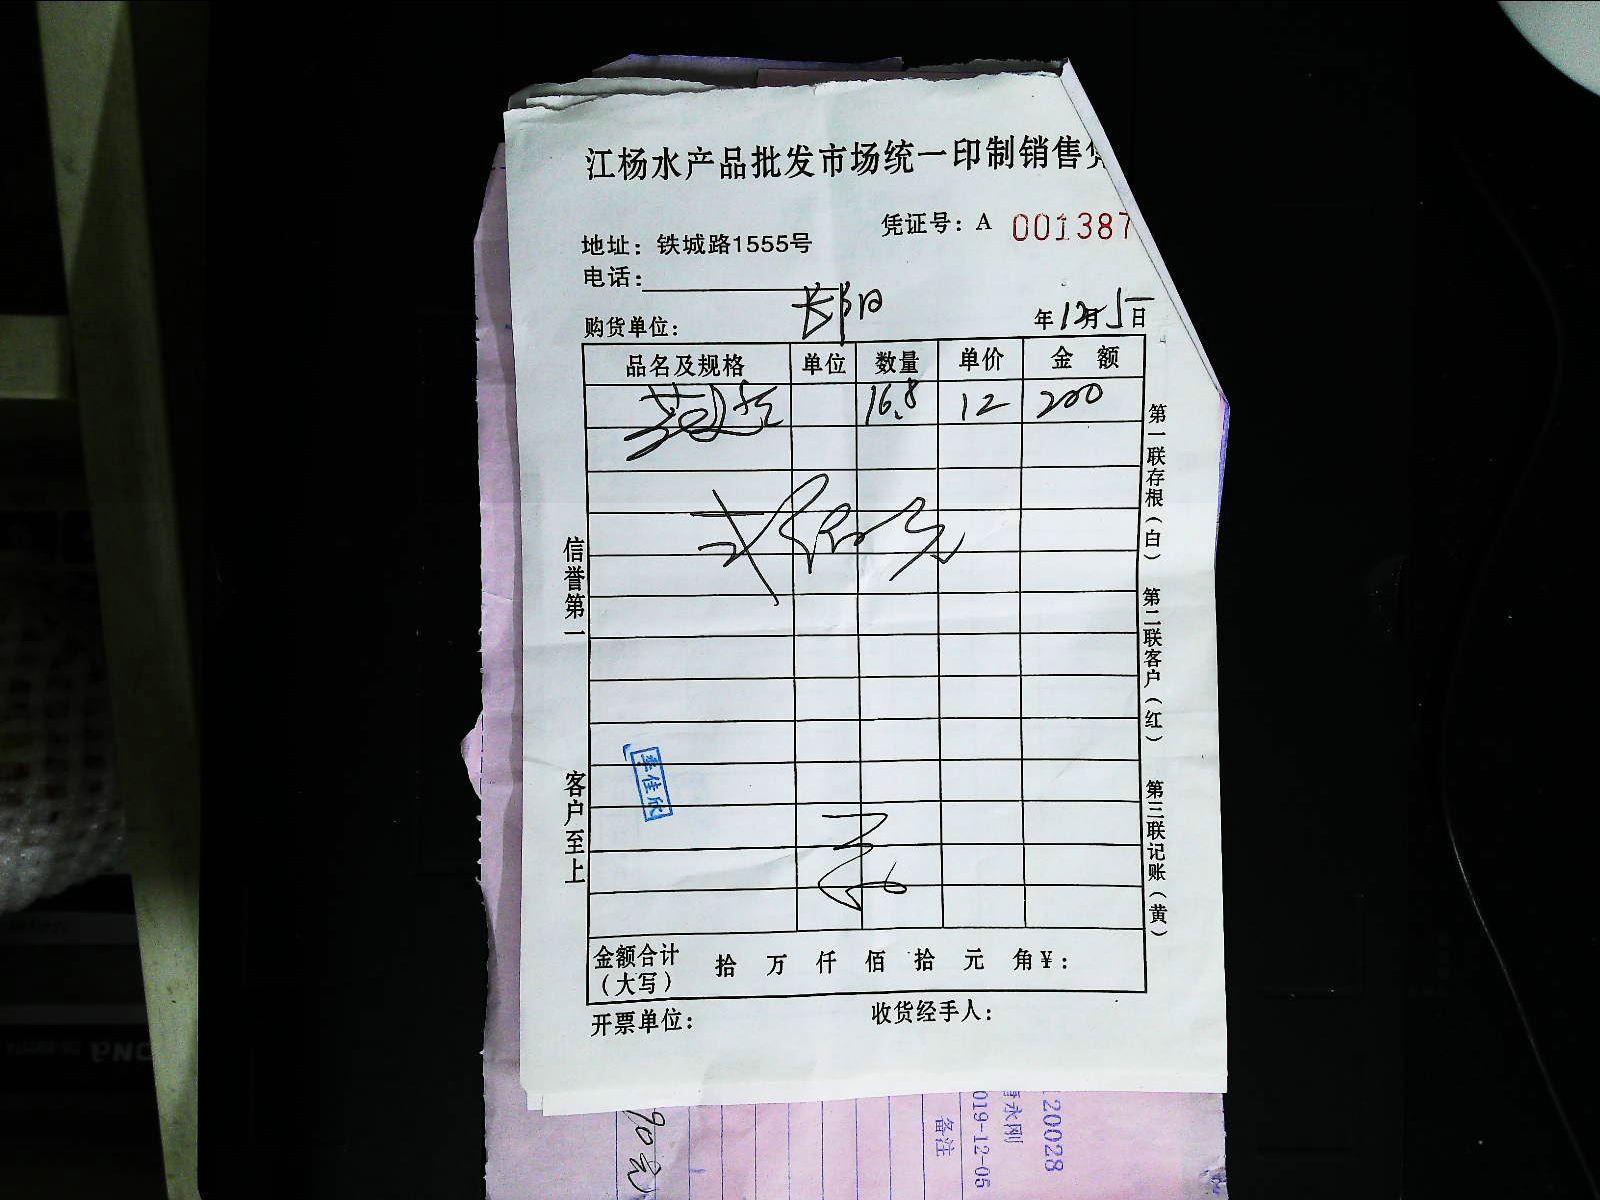 江杨水产品批发市场统一印制销售
凭证号：A 001387
地址：铁城路1555号
电话：
购货单位：
年12月5日
品名及规格 单位 数量 单价 金额
16.8 12 200
信誉第一
客户至上
第一联存根（白） 第二联客户（红） 第三联记账（黄）
季佳欣
金额合计（大写） 拾 万 仟 佰 拾 元 角¥：
开票单位： 收货经手人：
90元
备注
019-12-05
永刚
20028